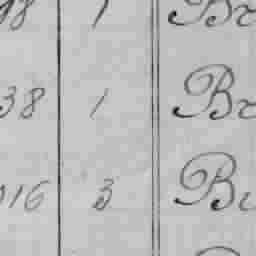 98 1 Br
38 1 Br
016 3 Br